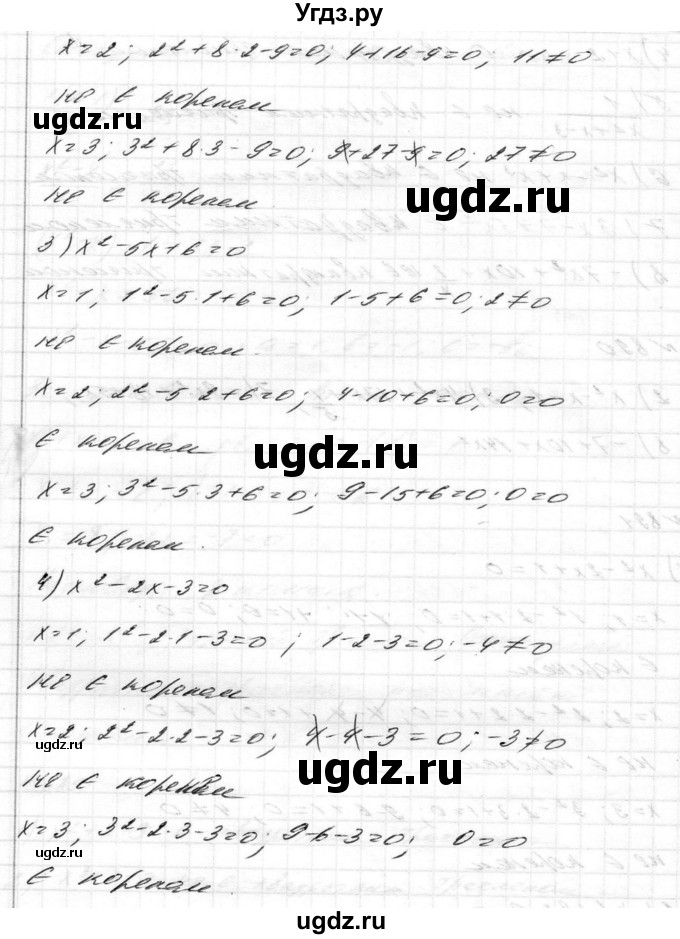 Угдз.ру
x=2; 2²+8·2-9=0; 4+16-9=0; 11≠0
не є коренем
ugdz.ru
x=3; 3²+8·3-9=0; 9+27-9=0; 27≠0
ugdz.ru
не є коренем
3) x²-5x+6=0
x=1; 1²-5·1+6=0; 1-5+6=0; 2≠0
не є коренем.
x=2; 2²-5·2+6=0; 4-10+6=0; 0=0
є коренем
ugdz.ru
x=3; 3²-5·3+6=0; 9-15+6=0; 0=0
є коренем.
4) x²-2x-3=0
x=1; 1²-2·1-3=0; 1-2-3=0; -4≠0
не є коренем
x=2; 2²-2·2-3=0; 4-4-3=0; -3≠0
ugdz.ru
ugdz.ru
не є коренем
x=3; 3²-2·3-3=0; 9-6-3=0; 0=0
ugdz.ru
є коренем.
ugdz.ru